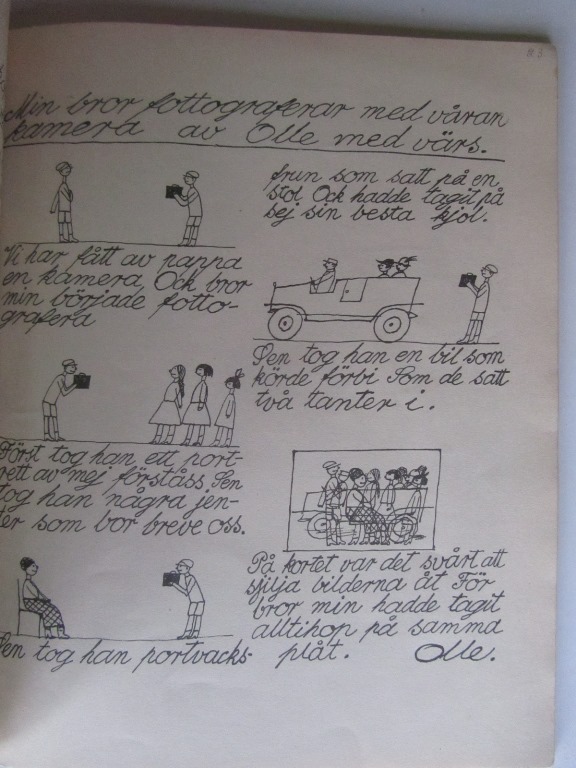 Min bror fottograferar med våran
kamera av Olle med värs.
Vi har fått av pappa
en kamera Ock bror
min började fotto-
grafera
Först tog han ett port-
rett av mej förståss Sen
tog han några jen-
ter som bor breve oss.
Sen tog han portvacks-
frun som satt på en
stol Ock hadde tagit på
sej sin besta kjol.
Sen tog han en bil som
körde förbi Som de satt
två tanter i.
På kortet var det svårt att
sjilja bilderna åt För
bror min hadde tagit
alltihop på samma
plåt. Olle.